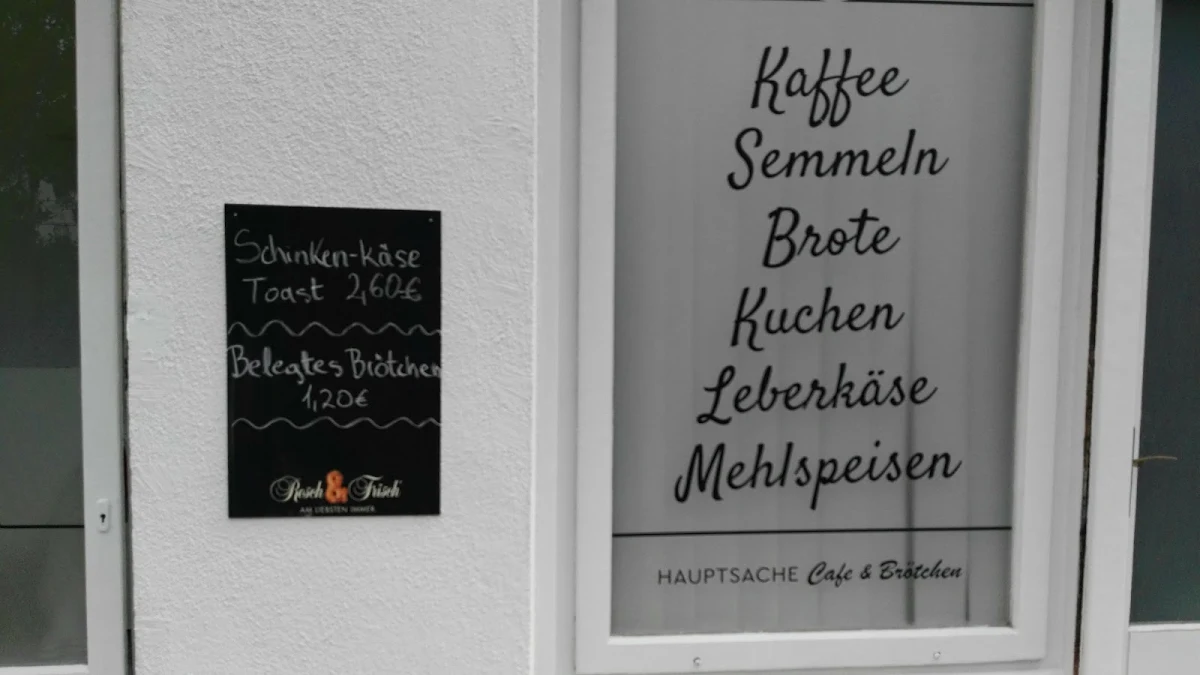 Schinken-Käse
Toast 2,60€
Belegtes Brötchen
1,20€
Resch & Frisch
AM LIEBSTEN IMMER
Kaffee
Semmeln
Brote
Kuchen
Leberkäse
Mehlspeisen
HAUPTSACHE Cafe & Brötchen